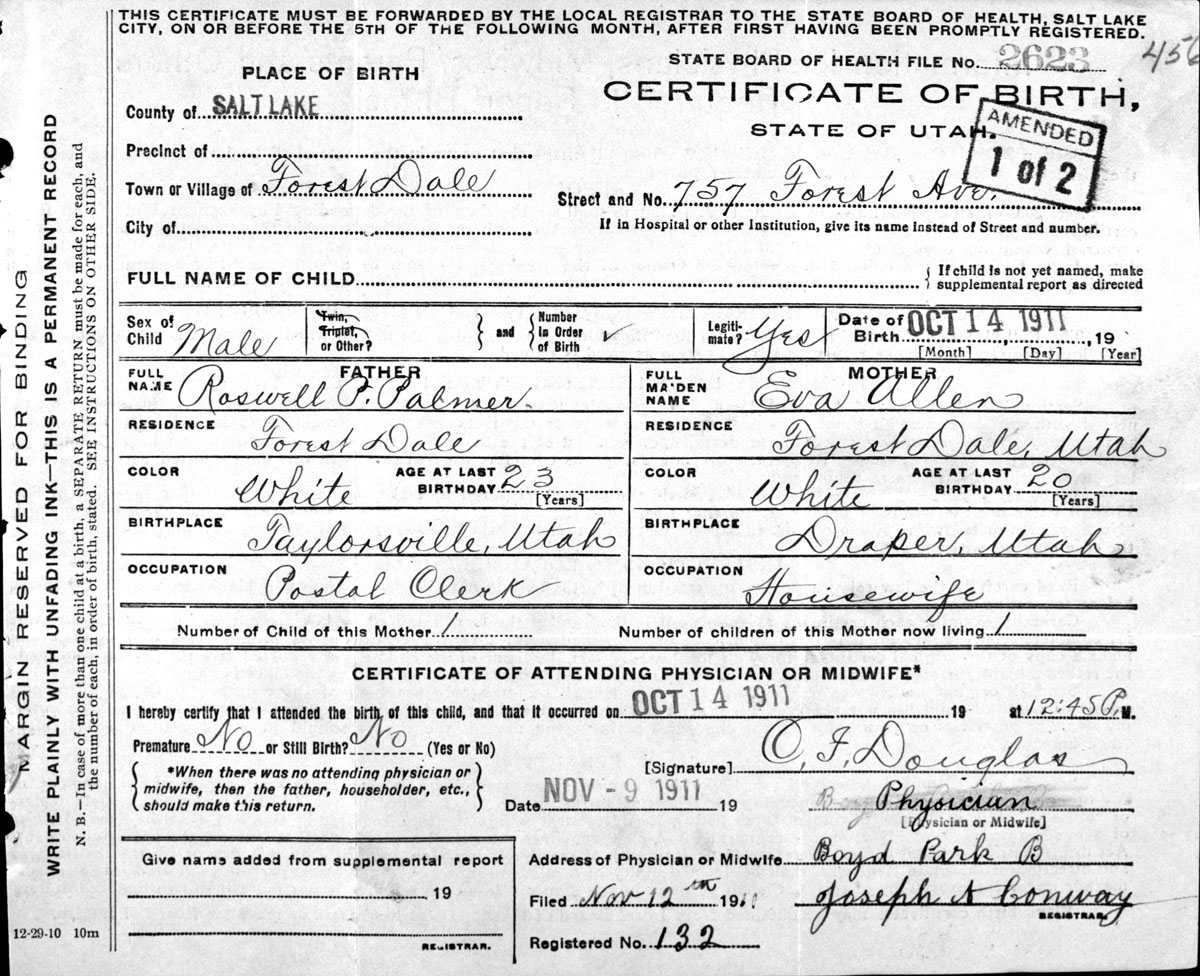 THIS CERTIFICATE MUST BE FORWARDED BY THE LOCAL REGISTRAR TO THE STATE BOARD OF HEALTH, SALT LAKE
CITY, ON OR BEFORE THE 5TH OF THE FOLLOWING MONTH, AFTER FIRST HAVING BEEN PROMPTLY REGISTERED.
STATE BOARD OF HEALTH FILE No. 2623
456
PLACE OF BIRTH
CERTIFICATE OF BIRTH,
STATE OF UTAH.
AMENDED
1 of 2
County of SALT LAKE
Precinct of
Town or Village of Forest Dale
Street and No. 757 Forest Ave.
City of
If in Hospital or other Institution, give its name instead of Street and number.
FULL NAME OF CHILD
If child is not yet named, make
supplemental report as directed
Sex of Child Male
Twin, Triplet, or Other?
and
Number in Order of Birth
Legiti-mate? Yes
Date of Birth OCT 14 1911, 19
[Month] [Day] [Year]
FATHER
FULL NAME Roswell P. Palmer.
MOTHER
FULL MAIDEN NAME Eva Allen
RESIDENCE Forest Dale
RESIDENCE Forest Dale, Utah
COLOR White
AGE AT LAST BIRTHDAY 23
[Years]
COLOR White
AGE AT LAST BIRTHDAY 20
[Years]
BIRTHPLACE Taylorsville, Utah
BIRTHPLACE Draper, Utah
OCCUPATION Postal Clerk
OCCUPATION Housewife
Number of Child of this Mother 1
Number of children of this Mother now living 1
CERTIFICATE OF ATTENDING PHYSICIAN OR MIDWIFE*
I hereby certify that I attended the birth of this child, and that it occurred on OCT 14 1911 19 at 12:45 P. M.
Premature No or Still Birth? No (Yes or No)
*When there was no attending physician or
midwife, then the father, householder, etc.,
should make this return.
[Signature] C. F. Douglas
Date NOV - 9 1911 19
Physician
[Physician or Midwife]
Give name added from supplemental report
19
REGISTRAR.
Address of Physician or Midwife Boyd Park B
Filed Nov 12th 1911
Joseph A Conway
REGISTRAR.
Registered No. 132
12-29-10 10m
MARGIN RESERVED FOR BINDING
WRITE PLAINLY WITH UNFADING INK—THIS IS A PERMANENT RECORD
N. B.—In case of more than one child at a birth, a SEPARATE RETURN must be made for each, and
the number of each, in order of birth, stated. SEE INSTRUCTIONS ON OTHER SIDE.